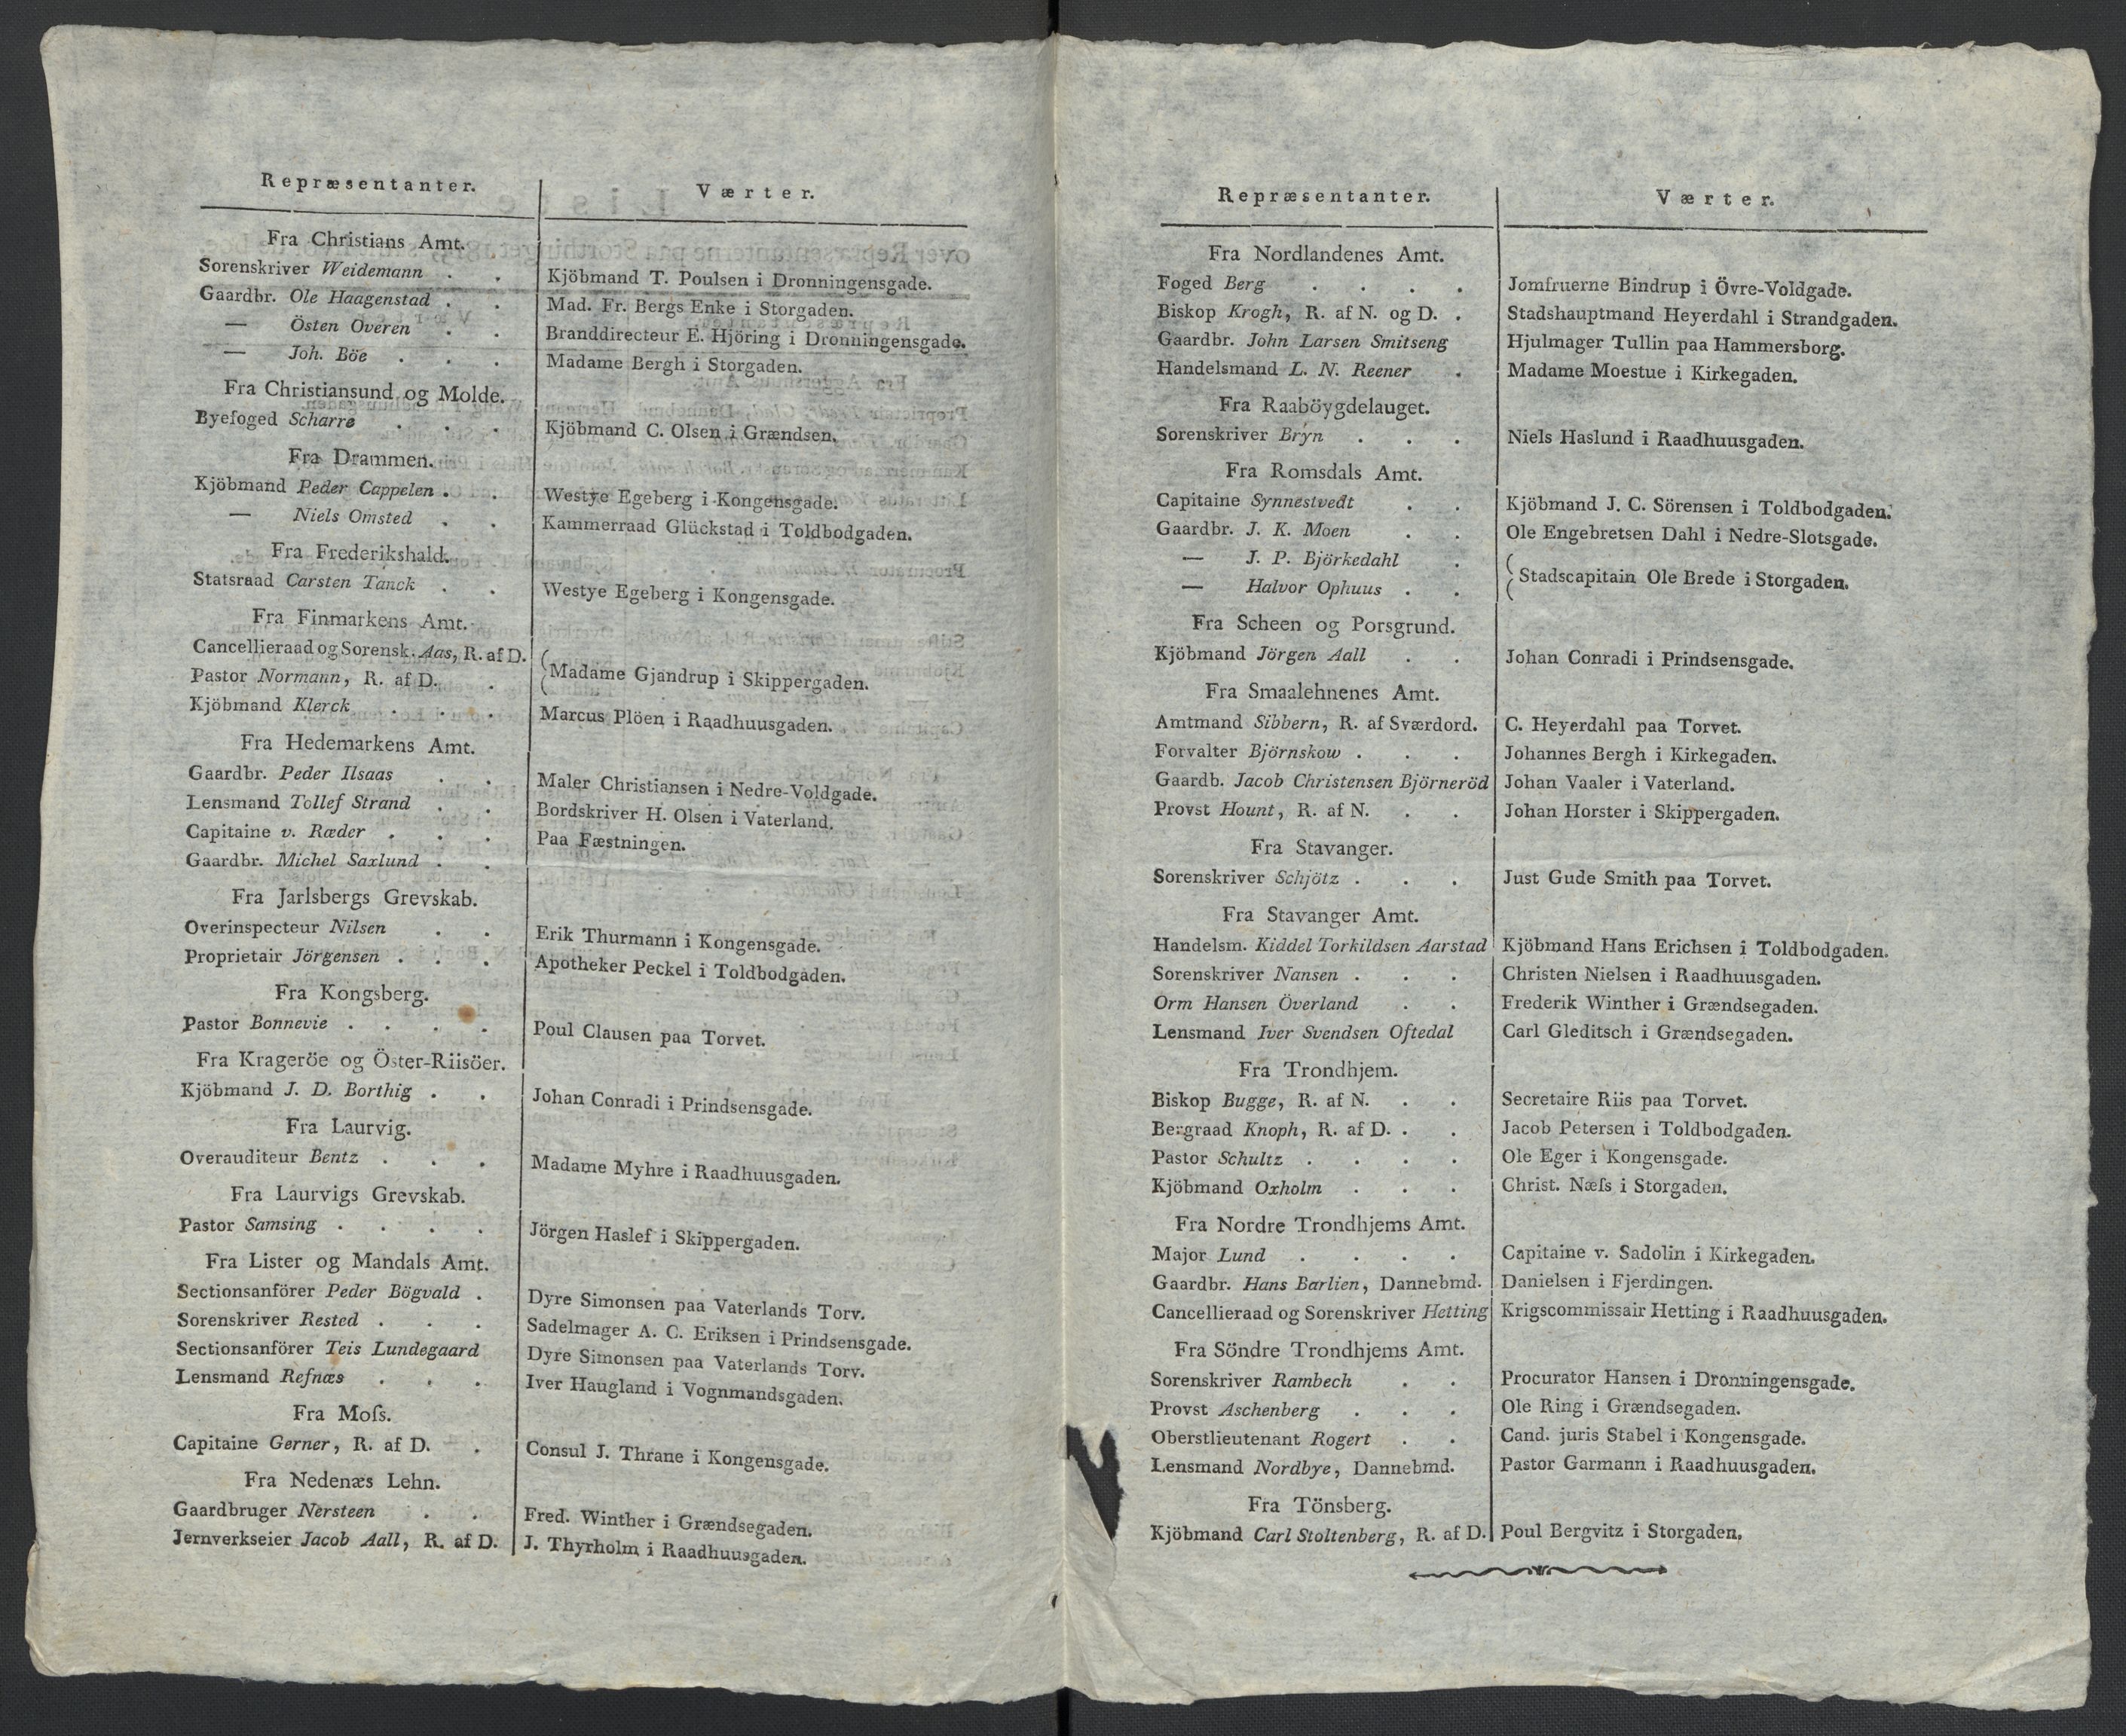 Repræsentanter. Værter.
Fra Christians Amt.
Sorenskriver Weidemann . . Kjöbmand T. Poulsen i Dronningensgade.
Gaardbr. Ole Haagenstad . . Mad. Fr. Bergs Enke i Storgaden.
— Östen Överen . . Branddirecteur E. Hjöring i Dronningensgade.
— Joh. Böe . . . Madame Bergh i Storgaden.
Fra Christiansund og Molde.
Byefoged Scharre . . . Kjöbmand C. Olsen i Grændsen.
Fra Drammen.
Kjöbmand Peder Cappelen . . Westye Egeberg i Kongensgade.
— Niels Omsted . . Kammerraad Glückstad i Toldbodgaden.
Fra Frederikshald.
Statsraad Carsten Tanck . . Westye Egeberg i Kongensgade.
Fra Finmarkens Amt.
Cancellieraad og Sorensk. Aas, R. af D.
Pastor Normann, R. af D. . Madame Gjandrup i Skippergaden.
Kjöbmand Klerck . . . Marcus Plöen i Raadhuusgaden.
Fra Hedemarkens Amt.
Gaardbr. Peder Ilsaas . . Maler Christiansen i Nedre-Voldgade.
Lensmand Tollef Strand . . Bordskriver H. Olsen i Vaterland.
Capitaine v. Ræder . . . Paa Fæstningen.
Gaardbr. Michel Saxlund . .
Fra Jarlsbergs Grevskab.
Overinspecteur Nilsen . . Erik Thurmann i Kongensgade.
Proprietair Jörgensen . . . Apotheker Peckel i Toldbodgaden.
Fra Kongsberg.
Pastor Bonnevie . . . . Poul Clausen paa Torvet.
Fra Krageröe og Öster-Riisöer.
Kjöbmand J. D. Borthig . . Johan Conradi i Prindsensgade.
Fra Laurvig.
Overauditeur Bentz . . . Madame Myhre i Raadhuusgaden.
Fra Laurvigs Grevskab.
Pastor Samsing . . . . Jörgen Haslef i Skippergaden.
Fra Lister og Mandals Amt.
Sectionsanförer Peder Bögvald . Dyre Simonsen paa Vaterlands Torv.
Sorenskriver Rested . . . Sadelmager A. C. Eriksen i Prindsensgade.
Sectionsanförer Teis Lundegaard Dyre Simonsen paa Vaterlands Torv.
Lensmand Refnæs . . . Iver Haugland i Vognmandsgaden.
Fra Moſs.
Capitaine Gerner, R. af D. . Consul J. Thrane i Kongensgade.
Fra Nedenæs Lehn.
Gaardbruger Nersteen . . Fred. Winther i Grændsegaden.
Jernverkseier Jacob Aall, R. af D. J. Thyrholm i Raadhuusgaden.
Repræsentanter. Værter.
Fra Nordlandenes Amt.
Foged Berg . . . . Jomfruerne Bindrup i Övre-Voldgade.
Biskop Krogh, R. af N. og D. . Stadshauptmand Heyerdahl i Strandgaden.
Gaardbr. John Larsen Smitseng Hjulmager Tullin paa Hammersborg.
Handelsmand L. N. Reener . Madame Moestue i Kirkegaden.
Fra Raaböygdelauget.
Sorenskriver Bryn . . . Niels Haslund i Raadhuusgaden.
Fra Romsdals Amt.
Capitaine Synnestvedt . . Kjöbmand J. C. Sörensen i Toldbodgaden.
Gaardbr. J. K. Moen . . Ole Engebretsen Dahl i Nedre-Slotsgade.
— J. P. Björkedahl .
— Halvor Ophuus . . Stadscapitain Ole Brede i Storgaden.
Fra Scheen og Porsgrund.
Kjöbmand Jörgen Aall . . Johan Conradi i Prindsensgade.
Fra Smaalehnenes Amt.
Amtmand Sibbern, R. af Sværdord. C. Heyerdahl paa Torvet.
Forvalter Björnskow . . . Johannes Bergh i Kirkegaden.
Gaardb. Jacob Christensen Björneröd Johan Vaaler i Vaterland.
Provst Hount, R. af N. . . Johan Horster i Skippergaden.
Fra Stavanger.
Sorenskriver Schjötz . . . Just Gude Smith paa Torvet.
Fra Stavanger Amt.
Handelsm. Kiddel Torkildsen Aarstad Kjöbmand Hans Erichsen i Toldbodgaden.
Sorenskriver Nansen . . . Christen Nielsen i Raadhuusgaden.
Orm Hansen Överland . . Frederik Winther i Grændsegaden.
Lensmand Iver Svendsen Oftedal Carl Gleditsch i Grændsegaden.
Fra Trondhjem.
Biskop Bugge, R. af N. . . Secretaire Riis paa Torvet.
Bergraad Knoph, R. af D. . . Jacob Petersen i Toldbodgaden.
Pastor Schultz . . . . Ole Eger i Kongensgade.
Kjöbmand Oxholm . . . Christ. Næſs i Storgaden.
Fra Nordre Trondhjems Amt.
Major Lund . . . . Capitaine v. Sadolin i Kirkegaden.
Gaardbr. Hans Barlien, Dannebmd. Danielsen i Fjerdingen.
Cancellieraad og Sorenskriver Hetting Krigscommissair Hetting i Raadhuusgaden.
Fra Söndre Trondhjems Amt.
Sorenskriver Rambech . . Procurator Hansen i Dronningensgade.
Provst Aschenberg . . . Ole Ring i Grændsegaden.
Oberstlieutenant Rogert . . Cand. juris Stabel i Kongensgade.
Lensmand Nordbye, Dannebmd. Pastor Garmann i Raadhuusgaden.
Fra Tönsberg.
Kjöbmand Carl Stoltenberg, R. af D. Poul Bergvitz i Storgaden.